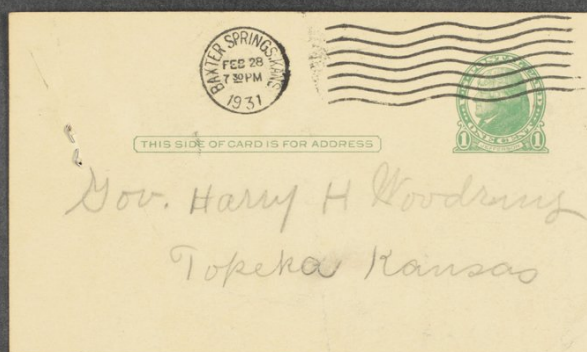 BAXTER SPRINGS, KANS.
FEB 28
7 30 PM
1931
THIS SIDE OF CARD IS FOR ADDRESS
1 ONE CENT 1
Gov. Harry H Woodring
Topeka Kansas